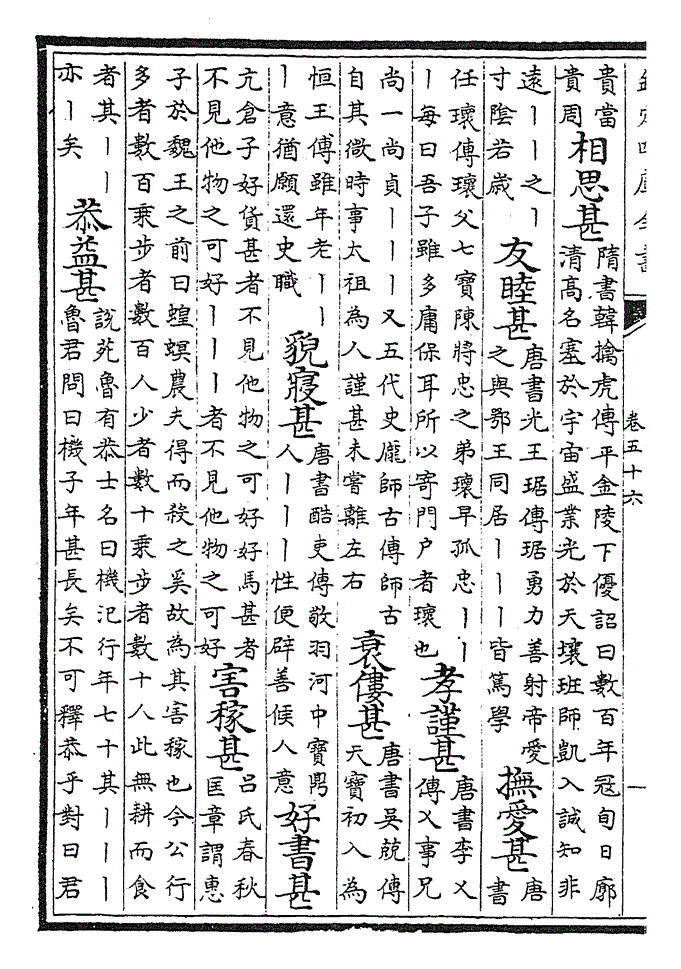 卷五十六
一
貴當
貴周
相思甚
隋書韓擒虎傳平金陵下優詔曰數百年冦旬日廓
清高名塞於宇宙盛業光於天壤班師凱入誠知非
遠丨丨之丨
寸陰若歲
友睦甚
唐書光王琚傳琚勇力善射帝愛
之與鄂王同居丨丨丨皆篤學
撫愛甚
唐
書
任瓌傳瓌父七寶陳將忠之弟瓌早孤忠丨丨
丨每曰吾子雖多庸保耳所以寄門户者瓌也
孝謹甚
唐書李乂
傳乂事兄
尚一尚貞丨丨丨又五代史龎師古傳師古
自其微時事太祖為人謹甚未嘗離左右
衰僂甚
唐書吳兢傳
天寶初入為
恒王傅雖年老丨丨
丨意猶願還史職
貌寢甚
唐書酷吏傳敬羽河中寶鼎
人丨丨丨性便辟善候人意
好書甚
亢倉子好貨甚者不見他物之可好好馬甚者
不見他物之可好丨丨丨者不見他物之可好
害稼甚
呂氏春秋
匡章謂惠
子於魏王之前曰蝗螟農夫得而殺之奚故為其害稼也今公行
多者數百乘步者數百人少者數十乘步者數十人此無耕而食
者其丨丨
亦丨矣
恭益甚
說苑魯有恭士名曰機汜行年七十其丨丨丨
魯君問曰機子年甚長矣不可釋恭乎對曰君